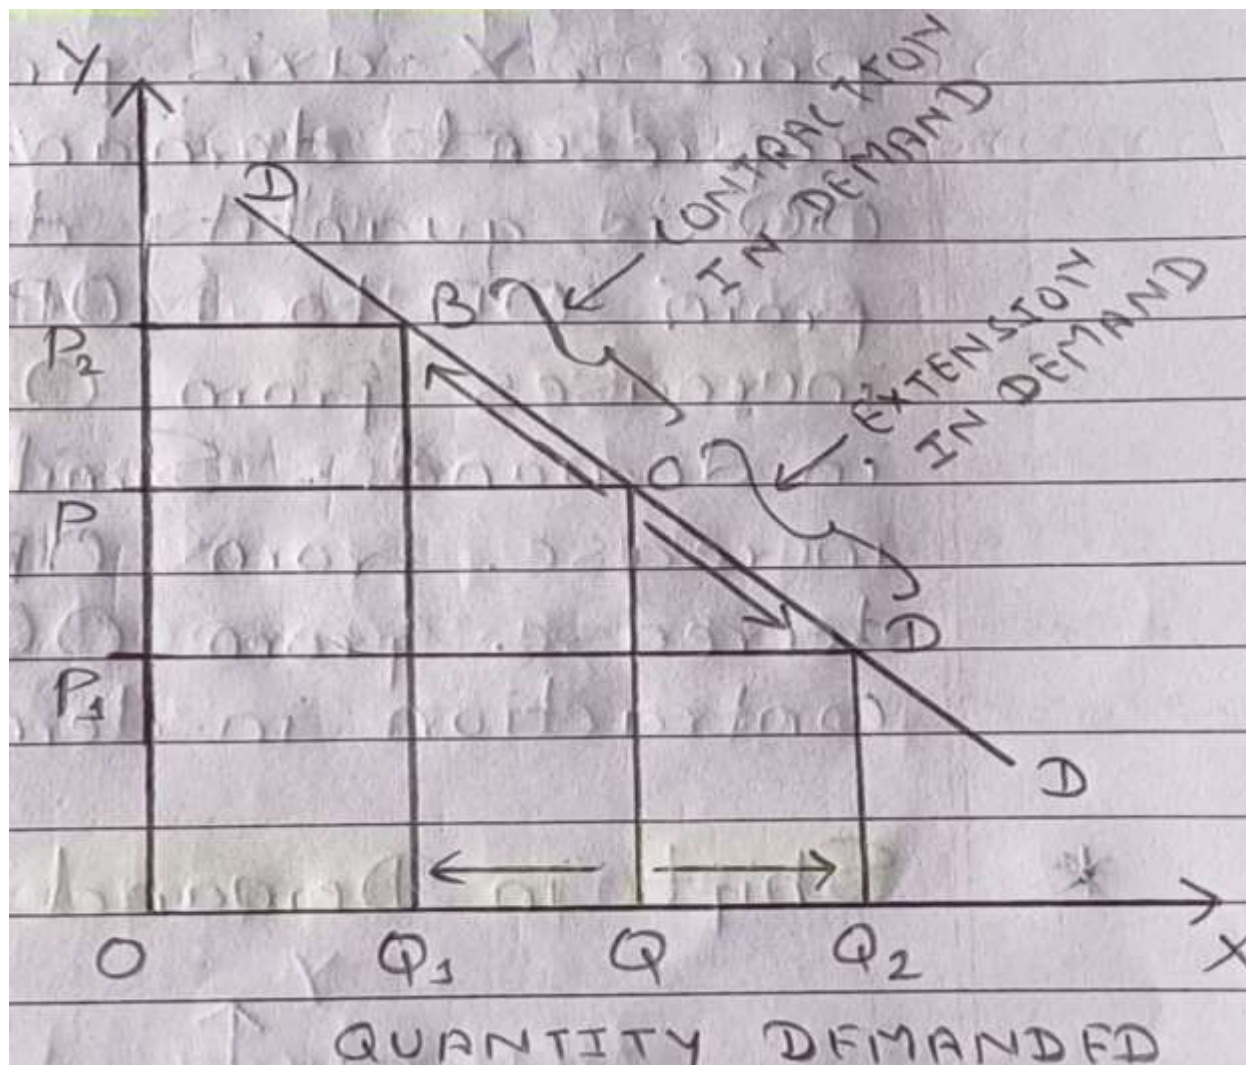 Y
CONTRACTION
IN DEMAND
D
EXTENSION
IN DEMAND
B
P2
C
P
D
P1
D
O Q1 Q Q2 X
QUANTITY DEMANDED